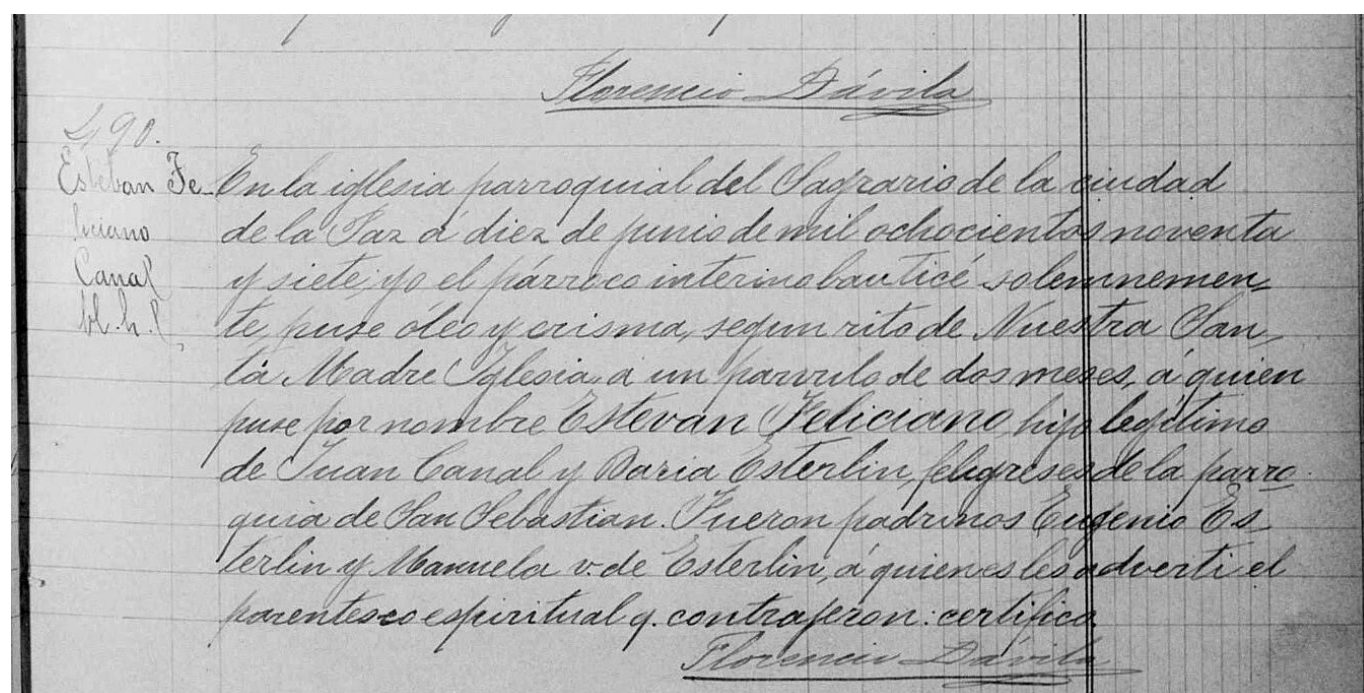 Florencio Dávila
490.
Esteban Fe-
liciano
Canal
bl. h. l
En la iglesia parroquial del Sagrario de la ciudad
de la Paz á diez de junio de mil ochocientos noventa
y siete; yo el párroco interino bauticé solemnemen-
te, puse óleo y crisma, segun rito de Nuestra San-
ta Madre Iglesia, a un parvulo de dos meses, á quien
puse por nombre Estevan Feliciano, hijo legítimo
de Juan Canal y Daria Esterlin, feligreses de la parro-
quia de San Sebastian. Fueron padrinos Eugenio Es-
terlin y Manuela v. de Esterlin, á quienes les adverti el
parentesco espiritual q. contrajeron: certifico.
Florencio Dávila